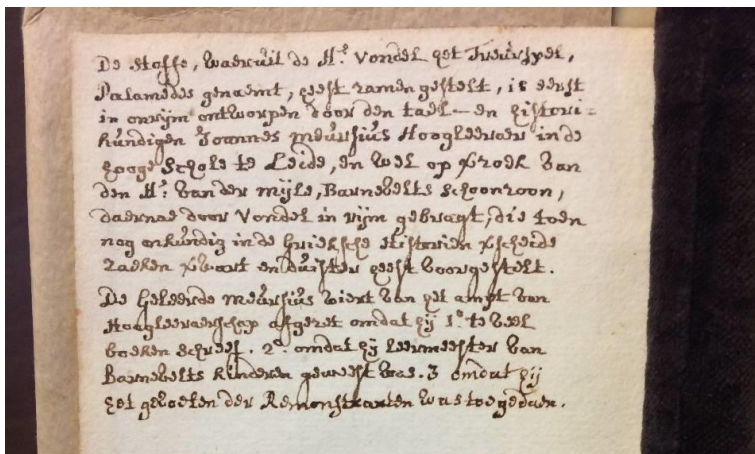 De stoffe, waeruit de Hr. Vondel het Treurspel,
Palamedes genaemt, heeft zamen gestelt, is eerst
in onrijm ontworpen door den tael- en histori=
kundigen Joannes Meursius Hoogleeraer in de
hooge Schole te Leide, en wel op xroek van
den Hr. van der Mijle, Barnevelts Schoonzoon,
daernae door Vondel in rijm gebragt, die toen
nog onkundig in de Grieksche Historien xscheide
zaeken xwart en duister heeft voorgestelt.
De Geleerde Meursius wiert van het ampt van
Hoogleeraerschap afgezet omdat hij 1o. te veel
boeken schreef. 2o. omdat hij leermeester van
Barnevelts kinderen geweest was. 3 omdat hij
het gevoelen der Remonstranten was toegedaen.